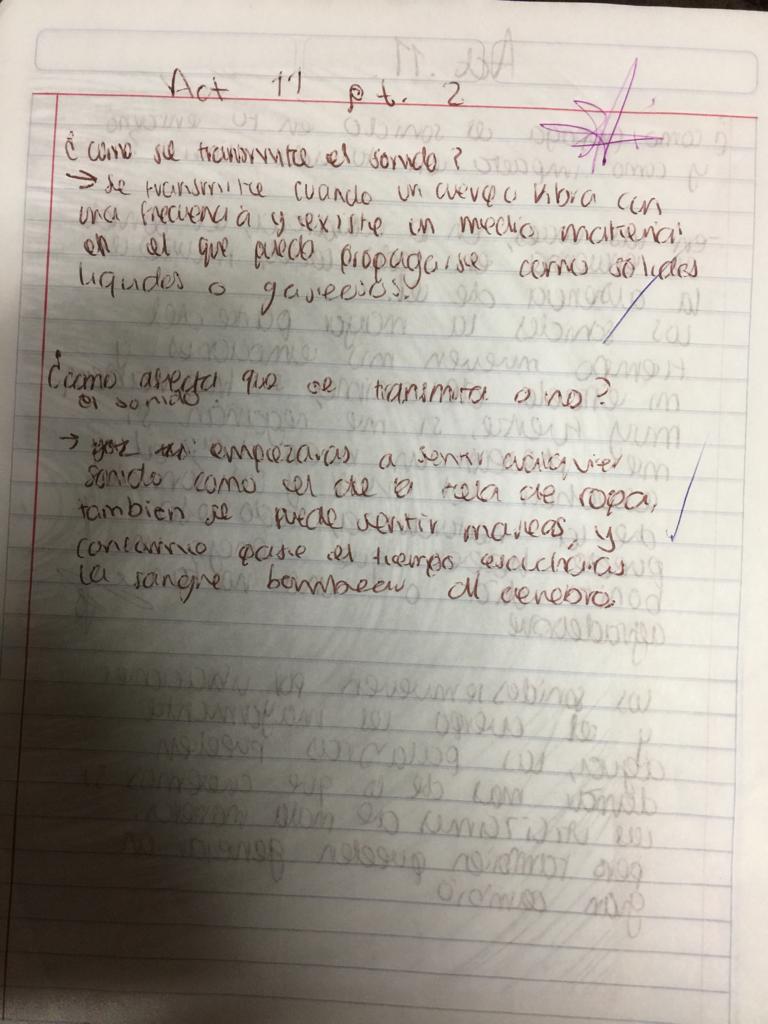 Act 11 pt. 2
¿como se transmite el sonido?
→ se transmitre cuando un cuerpo vibra con
una frecuencia y existe un medio material
en el que puedo propagarse como solides
liquides o gaseosos.
¿como afecta que se transmita o no?
el sonido.
→ empezaras a sentir cualquier
sonido como el de la tela de ropa,
tambien se puede sentir mareas, y
conforme pase el tiempo escucharas
la sangre bombear al cerebro.